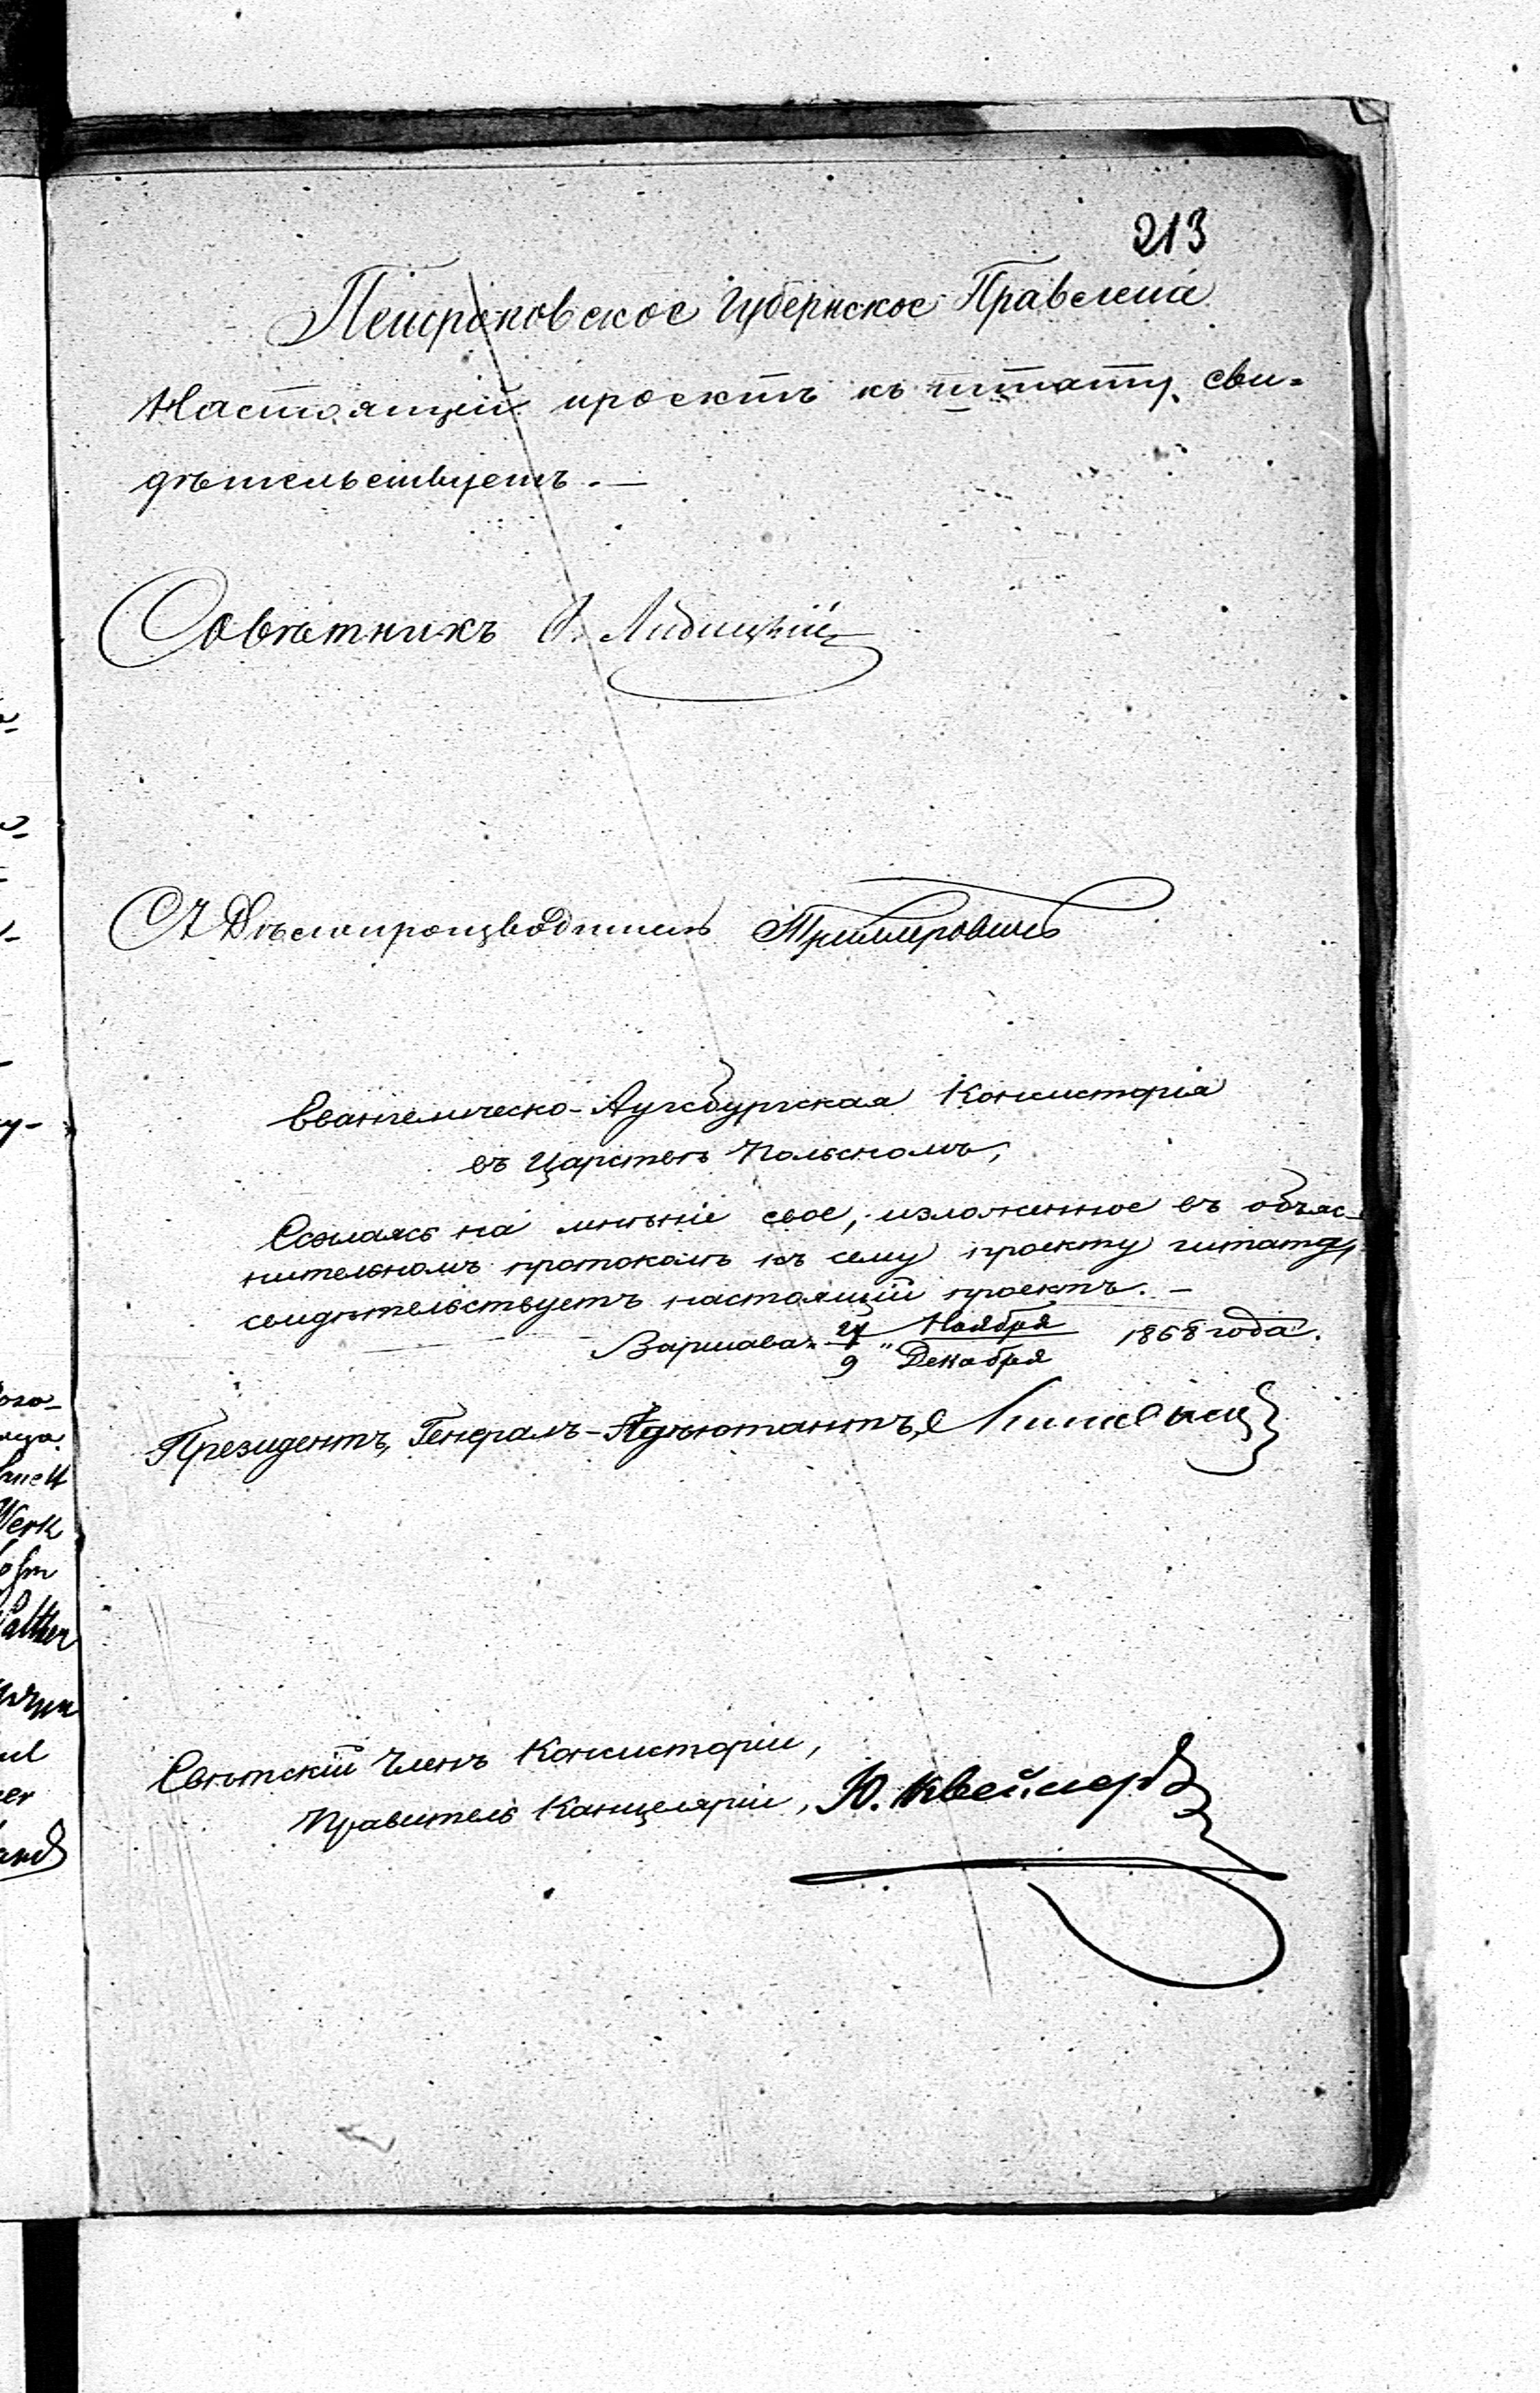 213
Петроковское Губернское Правленіе
Настоящій проектъ къ штату сви=
дѣтельствуетъ. —
Совѣтникъ
Дѣлопроизводитель
Евангелическо-Аугсбургская Консисторія
въ Царствѣ Польскомъ,
Ссылаясь на мнѣніе свое, изложенное въ объяс-
нительномъ протоколѣ къ сему проекту штата,
свидѣтельствуетъ настоящій проектъ. —
Варшава 27/9 Ноября/Декабря 1868 года.
Президентъ, Генералъ-Адъютантъ,
Свѣтскій Членъ Консисторіи,
Правитель Канцеляріи, Ю.
Werk